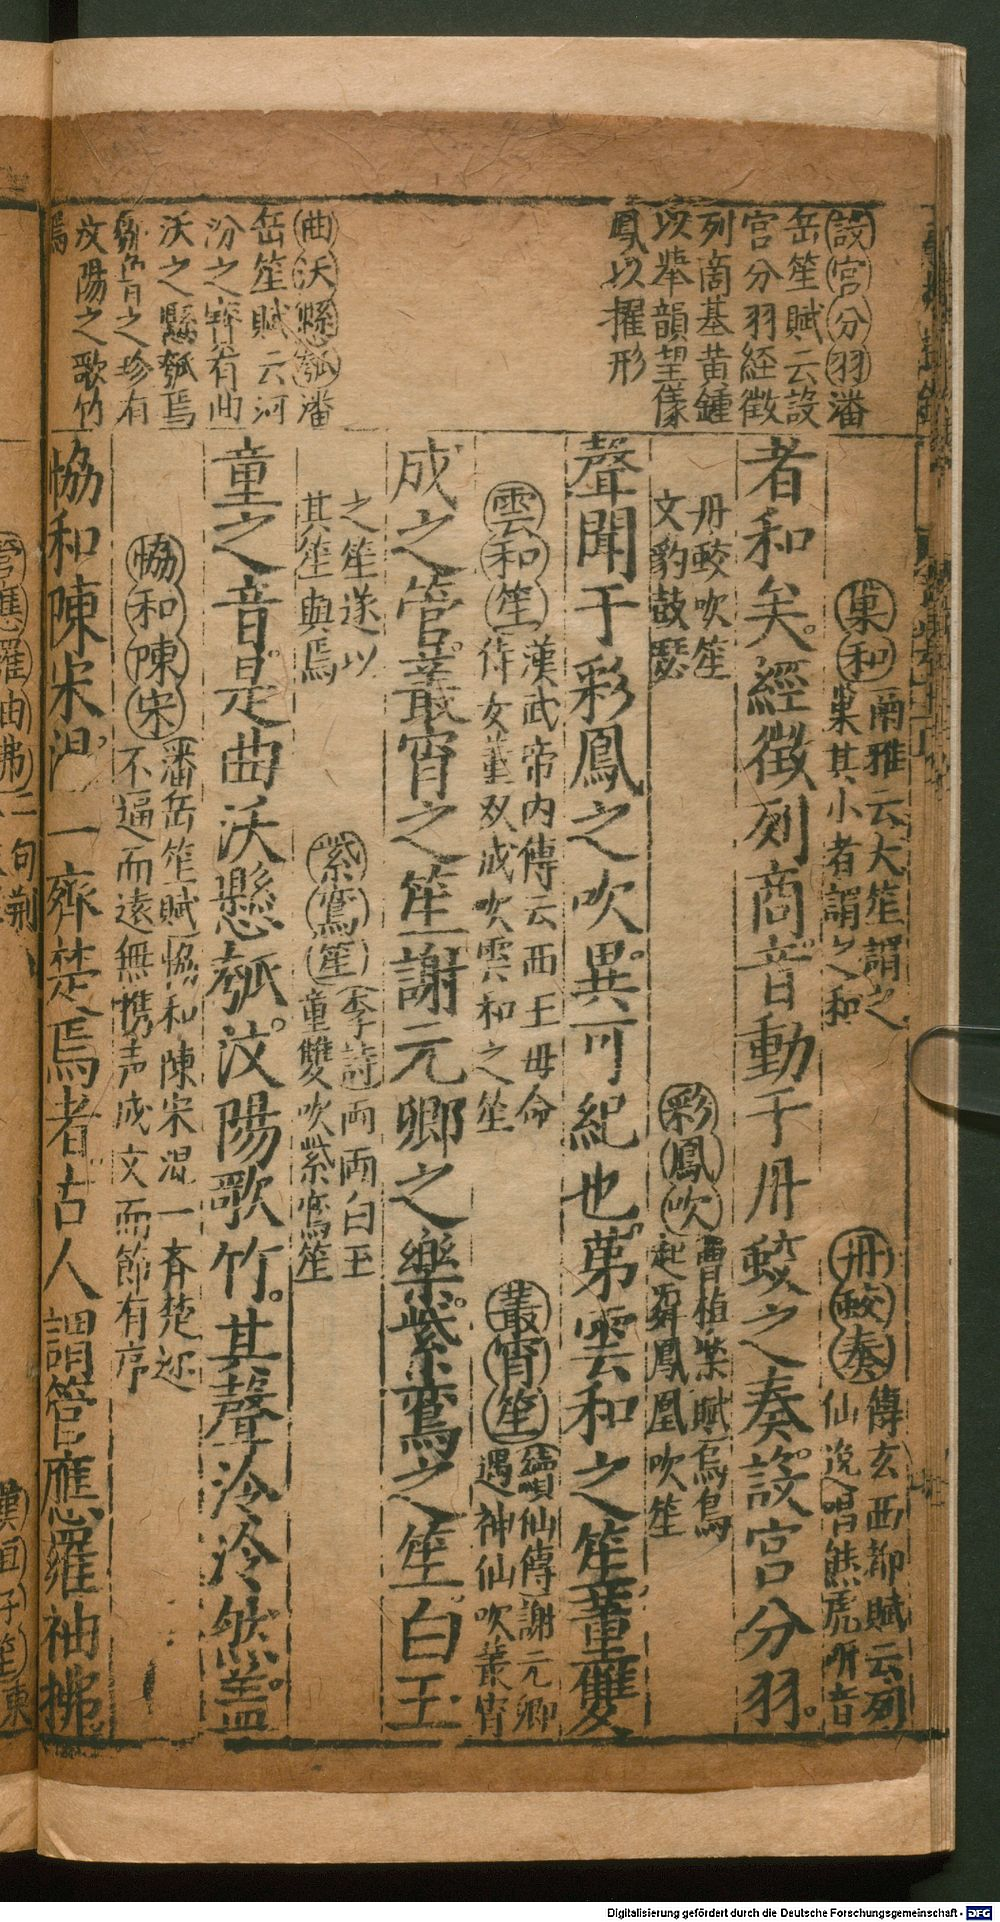 設宮分羽潘
岳笙賦云設
宮分羽経徵
列啇基黄鍾
以舉韻望儀
鳳以擢形
曲沃懸瓠潘
岳笙賦云河
汾之寶有曲
沃之懸瓠焉
鄒魯之珍有
汶陽之歌竹
焉
巢和
爾雅云大笙謂之
巢其小者謂之和
丹蛟奏
傅玄西都賦云列
仙逸唱熊虎吩音
者和矣經徵列商音動于丹蛟之奏設宮分羽
丹蛟吹笙
文豹鼓瑟
彩鳳吹
曹植樂賦烏鳥
起舞鳳凰吹笙
聲聞于彩鳳之吹異可紀也第雲和之笙董雙
雲和笙
漢武帝内傳云西王毋命
侍女董双成吹雲和之笙
叢宵笙
續仙傳謝元卿
遇神仙吹叢宵
成之管叢宵之笙謝元卿之樂紫鸞之笙白玉
之笙遂以
其笙與焉
紫鸞笙
李詩両両白玉
童雙吹紫鸞笙
童之音是曲沃懸瓠汶陽歌竹其聲泠泠然盖
恊和陳宋
潘岳笙賦恊和陳宋混一斉楚迩
不逼而遠無携声成文而節有序
恊和陳宋混一齊楚焉者古人謂管應羅袖拂
Digitalisierung gefördert durch die Deutsche Forschungsgemeinschaft - DFG